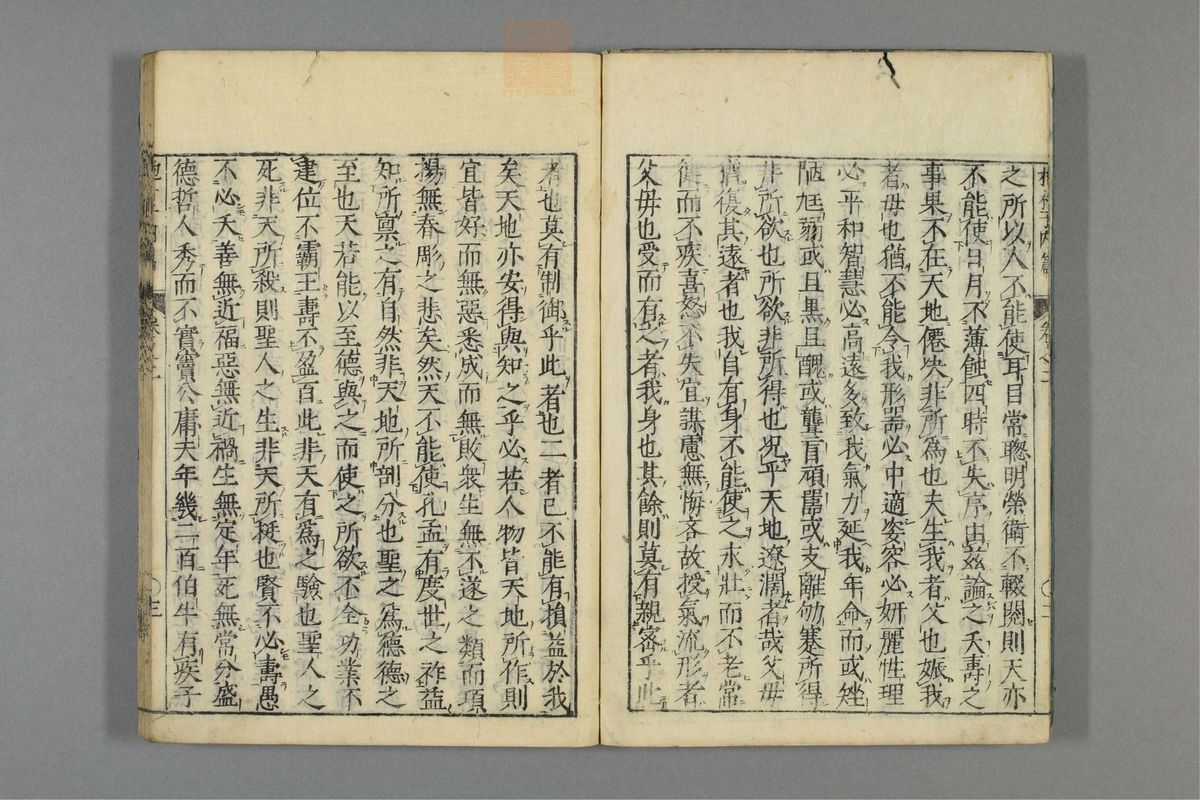 之所以人不能使耳目常聰明榮衛不輟閡則天亦
不能使日月不薄蝕四時不失序由茲論之夭壽之
事果不在天地僊與非所為也夫生我者父也娠我
者母也猶不能令我形器必中適姿容必妍麗性理
必平和智慧必高遠多致我氣力延我年命而或矬
陋尫弱或且黑且醜或聾盲頑嚚或支離劬蹇所得
非所欲也所欲非所得也況乎天地遼濶者哉父母
猶復其遠者也我自有身不能使之永壯而不老常
健而不疾喜怒不失宜謀慮無悔吝故授氣流形者
父母也受而有之者我身也其餘則莫有親密乎此
者也莫有制御乎此者也二者已不能有損益於我
矣天地亦安得與知之乎必若人物皆天地所作則
宜皆好而無惡悉成而無敗衆生無不遂之類而項
揚無春彫之悲矣然天不能使孔孟有度世之祚益
知所禀之有自然非天地所剖分也聖之為德德之
至也天若能以至德與之而使之所欲不全功業不
建位不霸王壽不盈百此非天有為之驗也聖人之
死非天所殺則聖人之生非天所挺也賢不必壽愚
不必夭善無近福惡無近禍生無定年死無常分盛
德哲人秀而不實竇公庸夫年幾二百伯牛有疾子